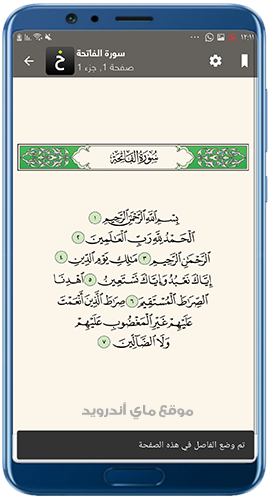 ١٢:١١
سورة الفاتحة
صفحة 1, جزء 1
خ
سُورَةُ الْفَاتِحَةِ
بِسْمِ اللَّهِ الرَّحْمَٰنِ الرَّحِيمِ ١
الْحَمْدُ لِلَّهِ رَبِّ الْعَالَمِينَ ٢
الرَّحْمَٰنِ الرَّحِيمِ ٣ مَالِكِ يَوْمِ الدِّينِ ٤
إِيَّاكَ نَعْبُدُ وَإِيَّاكَ نَسْتَعِينُ ٥ اهْدِنَا
الصِّرَاطَ الْمُسْتَقِيمَ ٦ صِرَاطَ الَّذِينَ أَنْعَمْتَ
عَلَيْهِمْ غَيْرِ الْمَغْضُوبِ عَلَيْهِمْ
وَلَا الضَّالِّينَ ٧
موقع ماي أندرويد
تم وضع الفاصل في هذه الصفحة